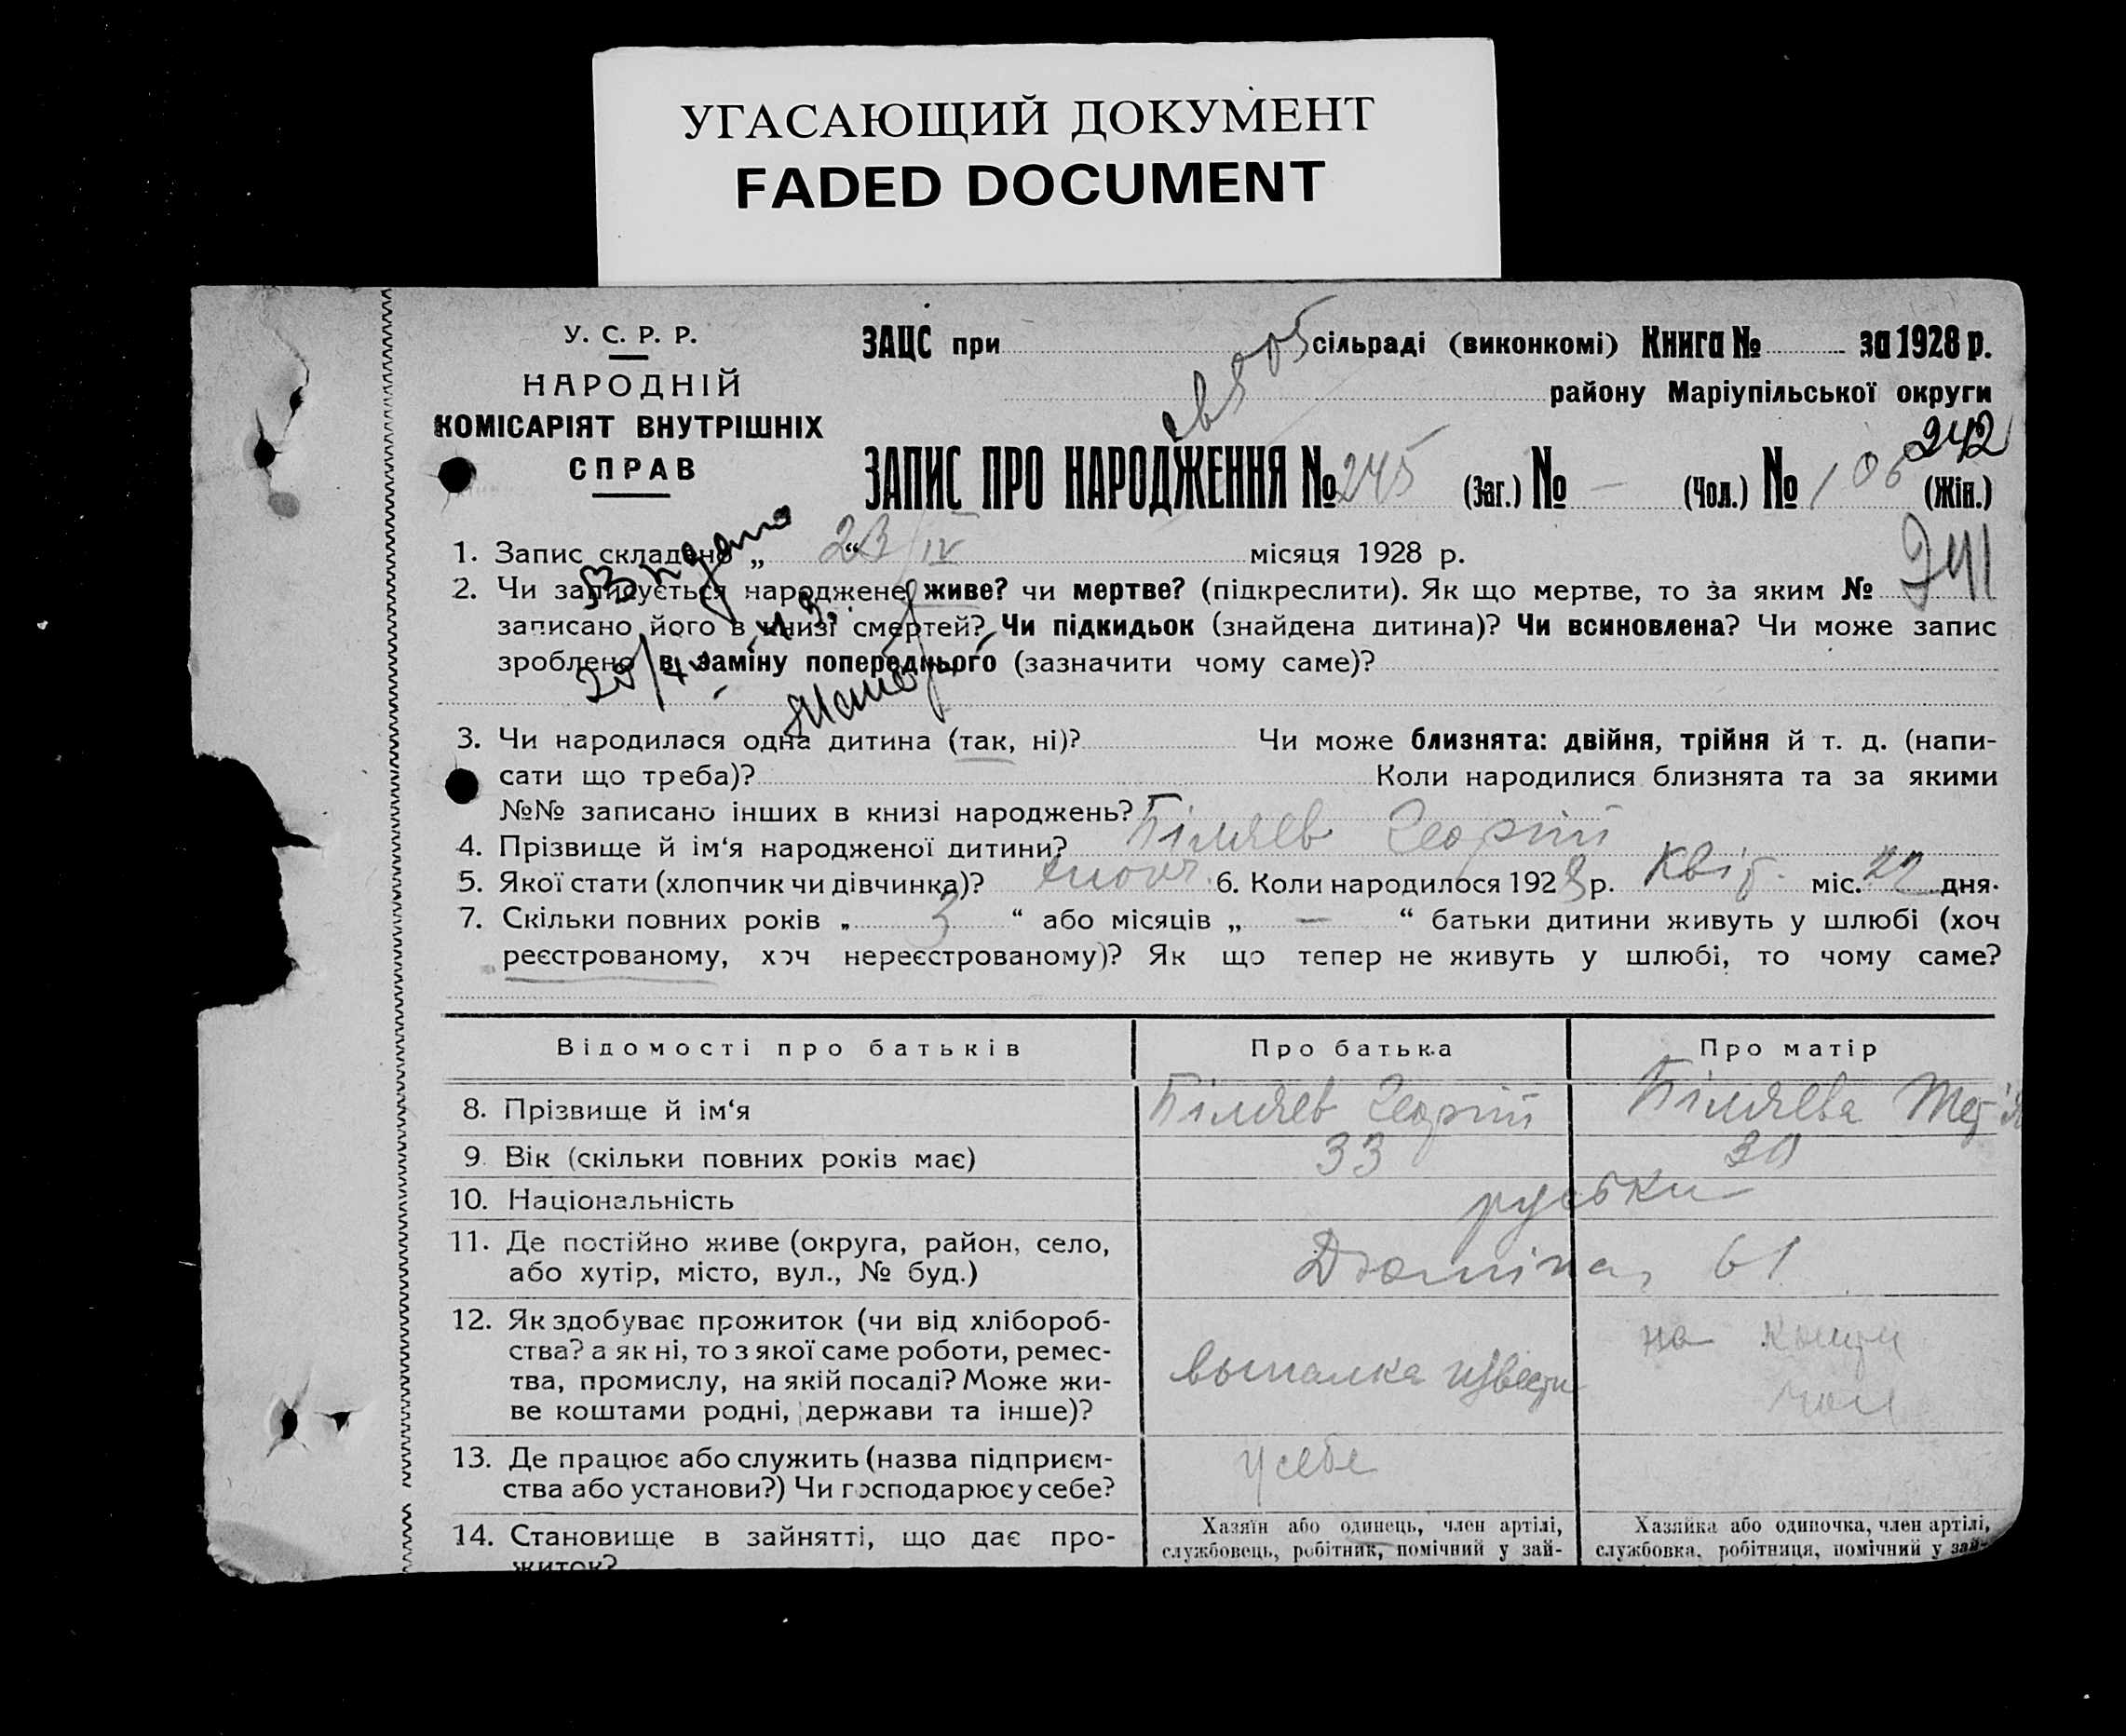 УГАСАЮЩИЙ ДОКУМЕНТ
FADED DOCUMENT
У. С. Р. Р.
НАРОДНІЙ
КОМІСАРІЯТ ВНУТРІШНІХ
СПРАВ
ЗАЦС при сільраді (виконкомі) Книга № за 1928 р.
району Маріупільської округи
242
ЗАПИС ПРО НАРОДЖЕННЯ № 245 (Заг.) № — (Чол.) № 106 (Жін.)
1. Запис складено „ 23 “ IV місяця 1928 р.
241
2. Чи записується народжене живе? чи мертве? (підкреслити). Як що мертве, то за яким №
записано його в книзі смертей? Чи підкидьок (знайдена дитина)? Чи всиновлена? Чи може запис
зроблено в заміну попереднього (зазначити чому саме)?
3. Чи народилася одна дитина (так, ні)? Чи може близнята: двійня, трійня й т. д. (напи-
сати що треба)? Коли народилися близнята та за якими
№№ записано інших в книзі народжень?
4. Прізвище й ім‘я народженої дитини? Біляев Георгій
5. Якої стати (хлопчик чи дівчинка)? 6. Коли народилося 1928 р. Квіт. міс. 22 дня.
7. Скільки повних років „ 3 “ або місяців „ — “ батьки дитини живуть у шлюбі (хоч
реєстрованому, хоч нереєстрованому)? Як що тепер не живуть у шлюбі, то чому саме?
Відомості про батьків Про батька Про матір
8. Прізвище й ім‘я Біляев Георгій Біляева
9. Вік (скільки повних років має) 33 30
10. Національність руські
11. Де постійно живе (округа, район, село,
або хутір, місто, вул., № буд.) 61
12. Як здобуває прожиток (чи від хлібороб-
ства? а як ні, то з якої саме роботи, ремес-
тва, промислу, на якій посаді? Може жи-
ве коштами родні, держави та інше)?
выпалка извести
на кошти
чол
13. Де працює або служить (назва підприєм-
ства або установи?) Чи господарює у себе?
у себе
14. Становище в зайнятті, що дає про-
житок?
Хазяїн або одинець, член артілі,
службовець, робітник, помічний у зай-
Хазяйка або одиночка, член артілі,
службовка, робітниця, помічний у зай-